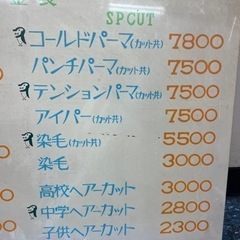 SPCUT
コールドパーマ(カット共) 7800
パンチパーマ(カット共) 7500
テンションパーマ(カット共) 7500
アイパー(カット共) 7500
染毛(カット共) 5500
染毛 3000
高校ヘアーカット 3000
中学ヘアーカット 2800
子供ヘアーカット 2300